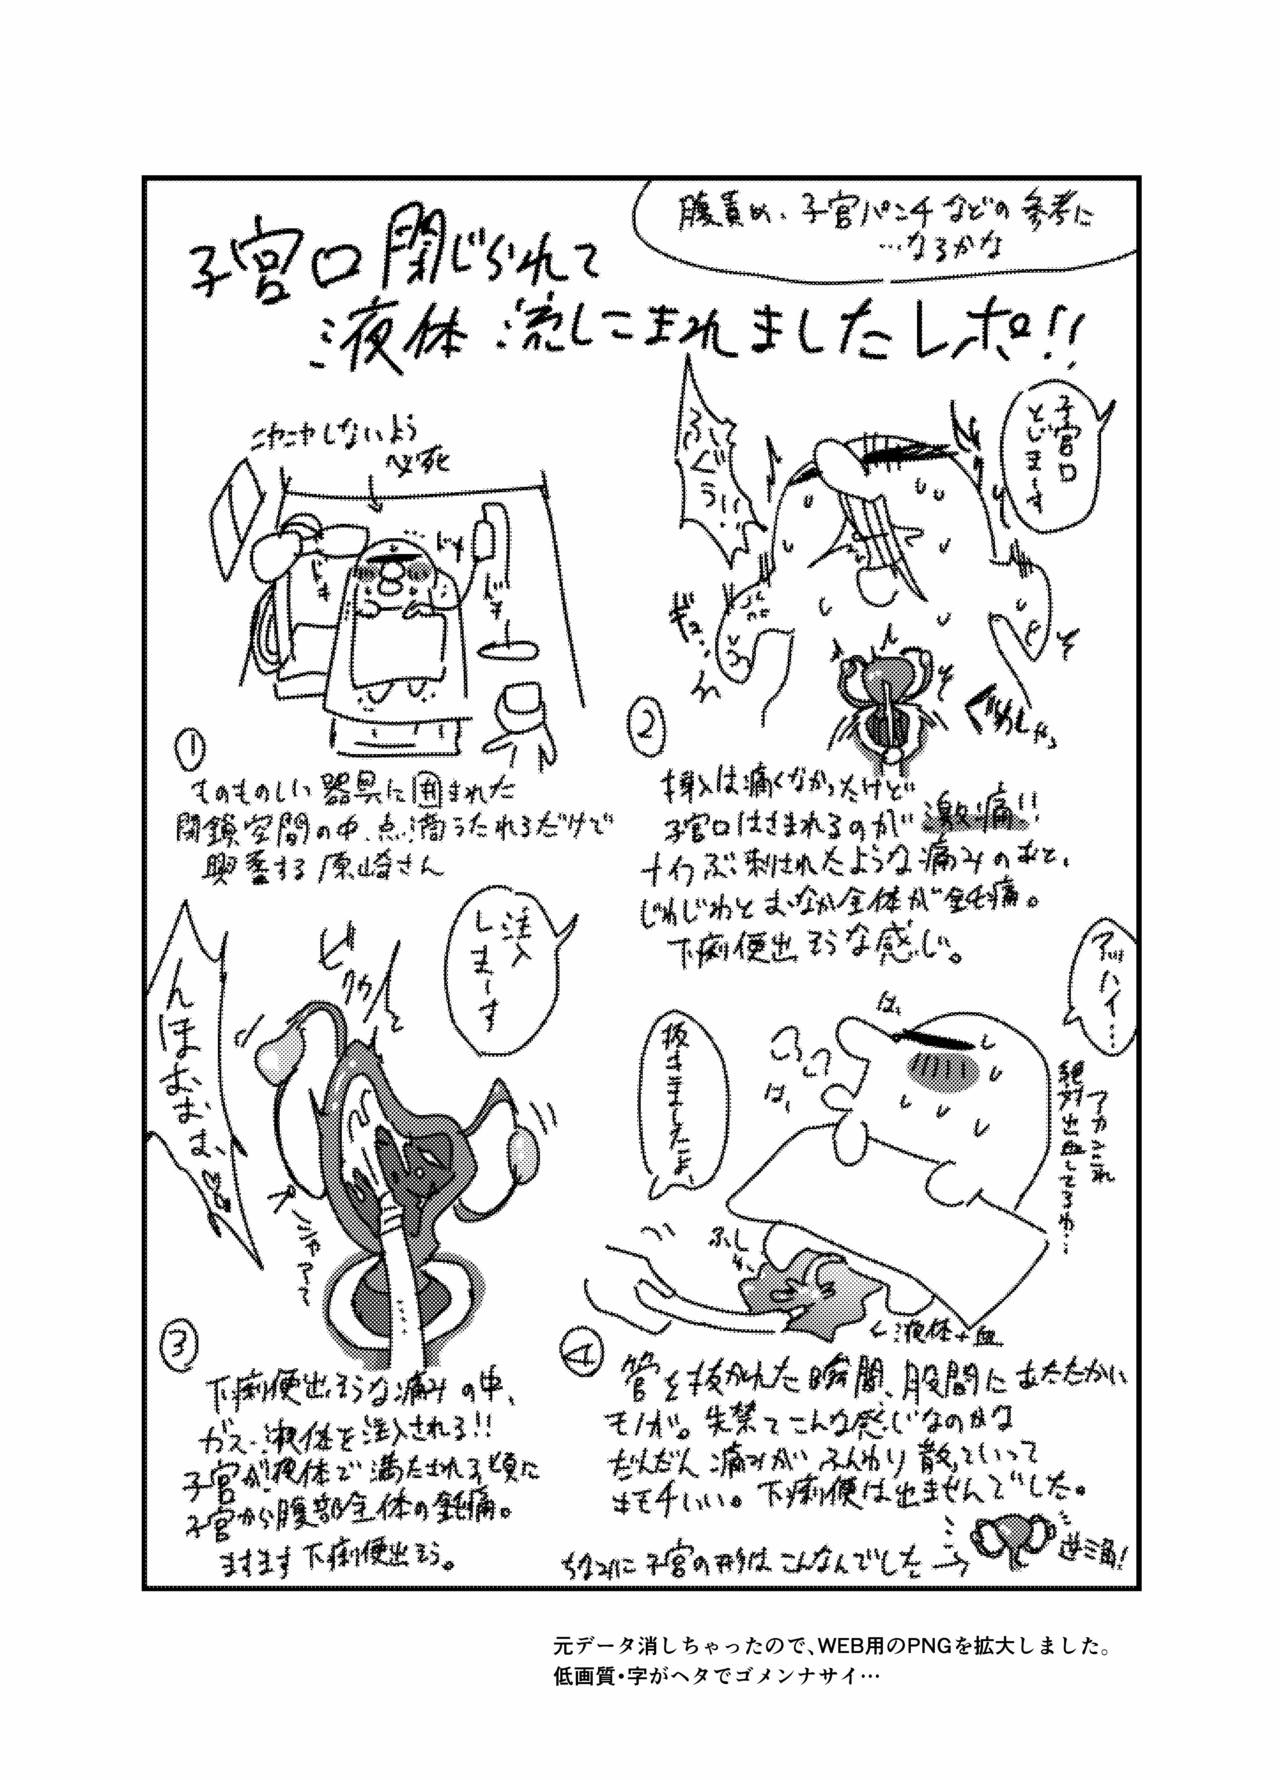 腹責め、子宮パンチなどの参考に
…なるかな
子宮口閉じられて
液体流しこまれましたレポ!!
ニヤニヤしないよう
必死
ドキ
ドキ
ドキ
①
ものものしい器具に囲まれた
閉鎖空間の中、点滴うたれるだけで
興奮する原崎さん
子宮口
とじまーす
ふぐぅ!!
ギュ…
ぐわしゃっ
②
挿入は痛くなかったけど
子宮口はさまれるのが激痛!!
ナイフぶっ刺されたような痛みのあと、
じわじわとおなか全体が鈍痛。
下痢便出そうな感じ。
注入
しまーす
んほおおお
ビクカーッと
プシャアアア
③
下痢便出そうな痛みの中、
ガス・液体を注入される!!
子宮が液体で満たされる頃に
子宮から腹部全体の鈍痛。
ますます下痢便出そう。
アッハイ…
アカンこれ
絶対出血してるわ…
抜きましたよ
はっ
はっ
←液体+血
④
管を抜かれた瞬間、股間にあたたかい
モノが。失禁てこんな感じなのかな
だんだん痛みがふんわり散っていって
キモチいい。下痢便は出ませんでした。
ちなみに子宮の形はこんなんでした→
逆三角!
元データ消しちゃったので、WEB用のPNGを拡大しました。
低画質・字がヘタでゴメンナサイ…